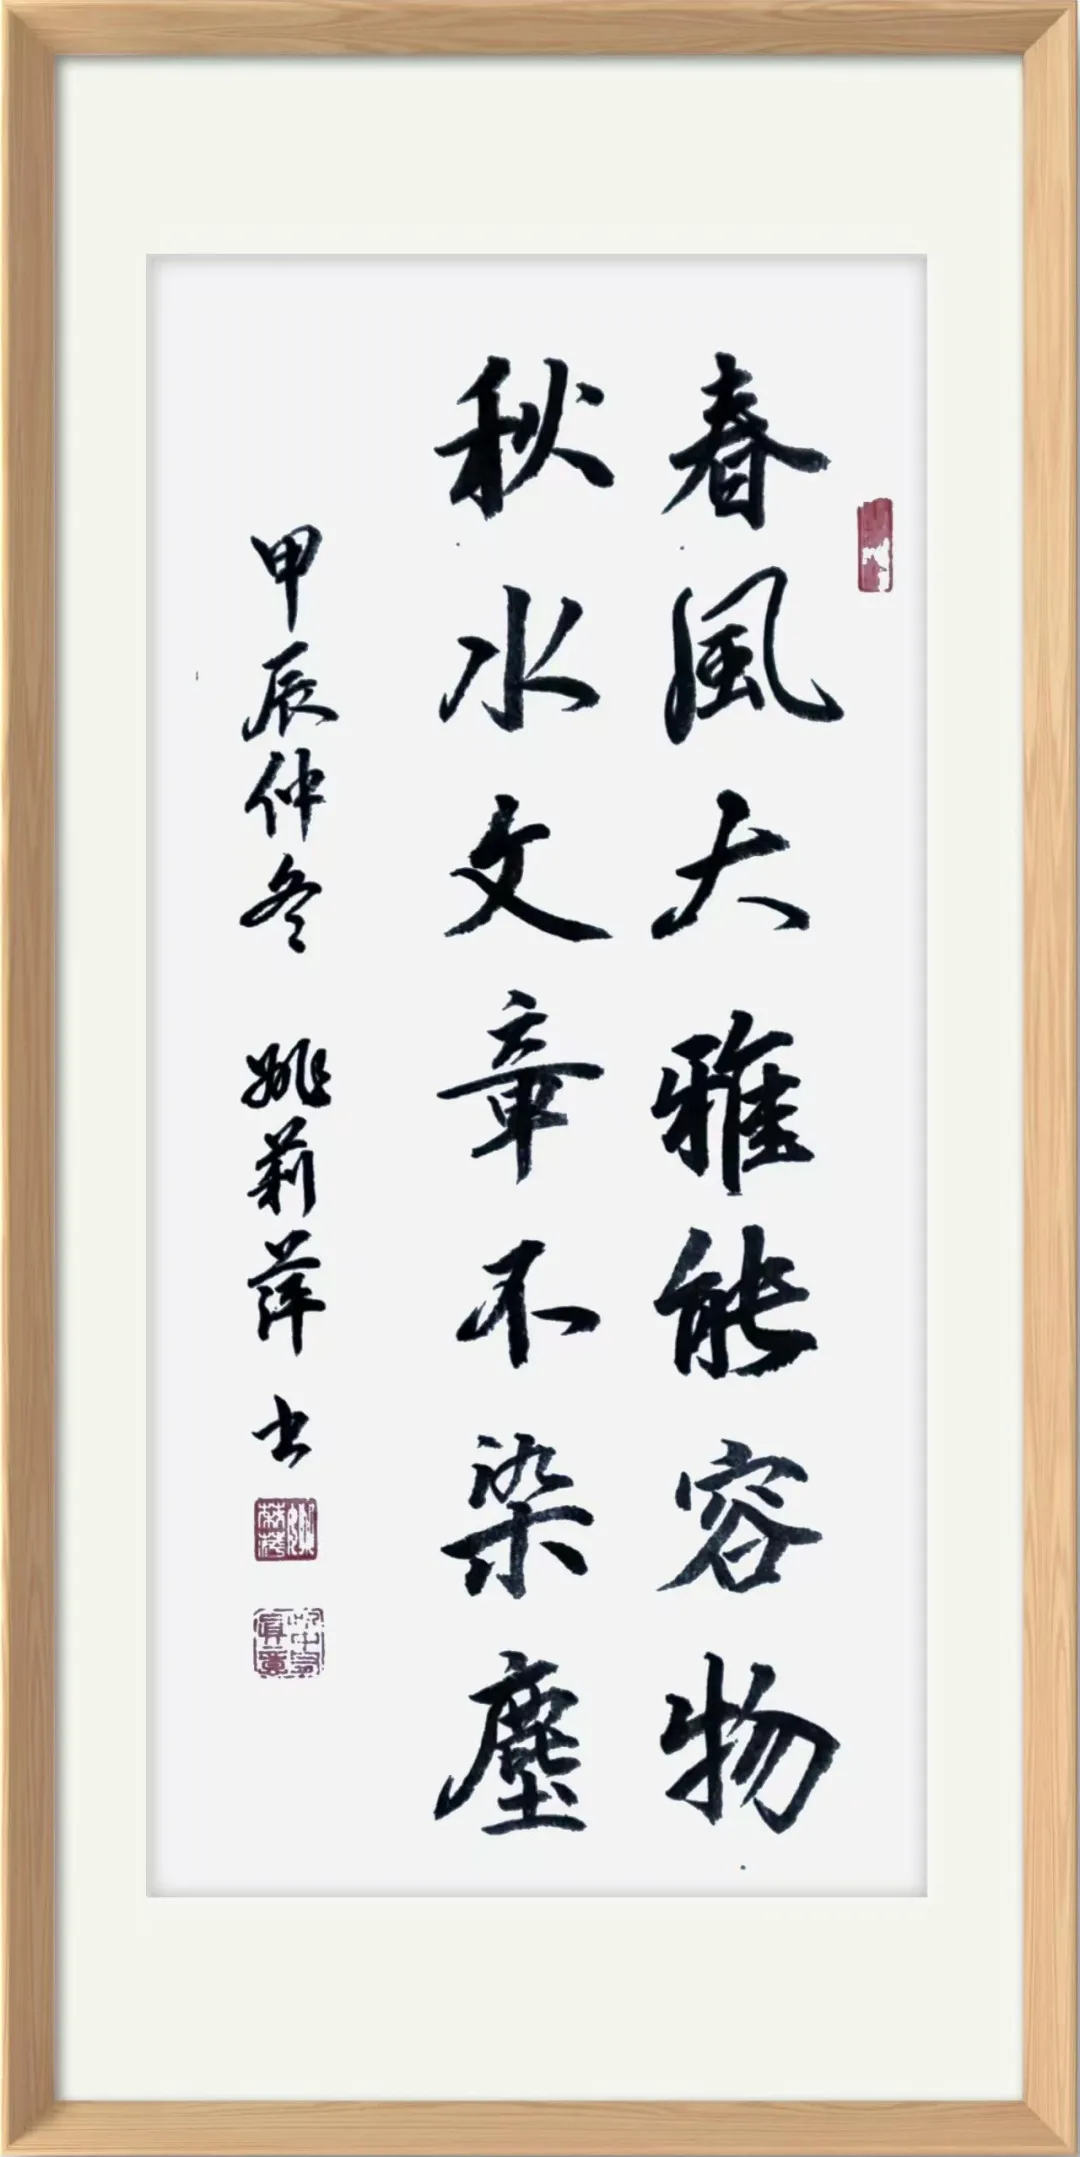 春風大雅能容物
秋水文章不染塵
甲辰仲冬 姚莉萍书